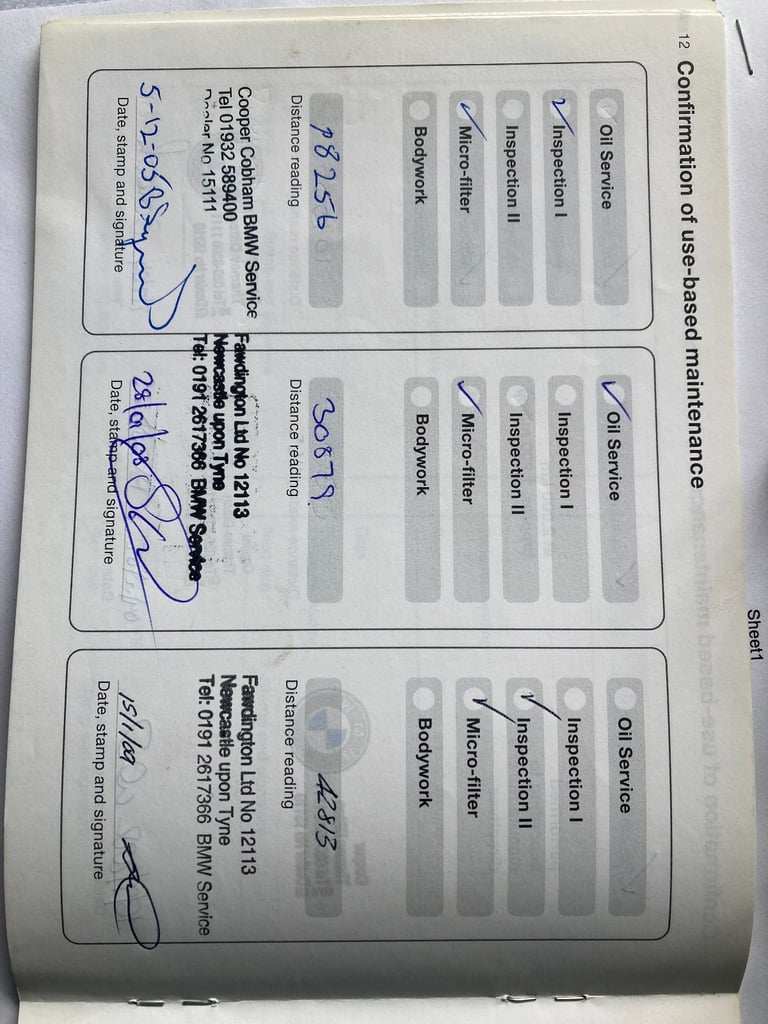 12 Confirmation of use-based maintenance
Oil Service
✓ Inspection I
Inspection II
✓ Micro-filter
Bodywork
Distance reading
Cooper Cobham BMW Service
Tel 01932 589400
Dealer No 15111
5-12-05
Date, stamp and signature
✓ Oil Service
Inspection I
Inspection II
✓ Micro-filter
Bodywork
30879
Distance reading
Fawdington Ltd No 12113
Newcastle upon Tyne
Tel: 0191 2617366 BMW Service
Date, stamp and signature
Oil Service
Inspection I
✓ Inspection II
✓ Micro-filter
Bodywork
42813
Distance reading
Fawdington Ltd No 12113
Newcastle upon Tyne
Tel: 0191 2617366 BMW Service
15/1/09
Date, stamp and signature
Sheet1